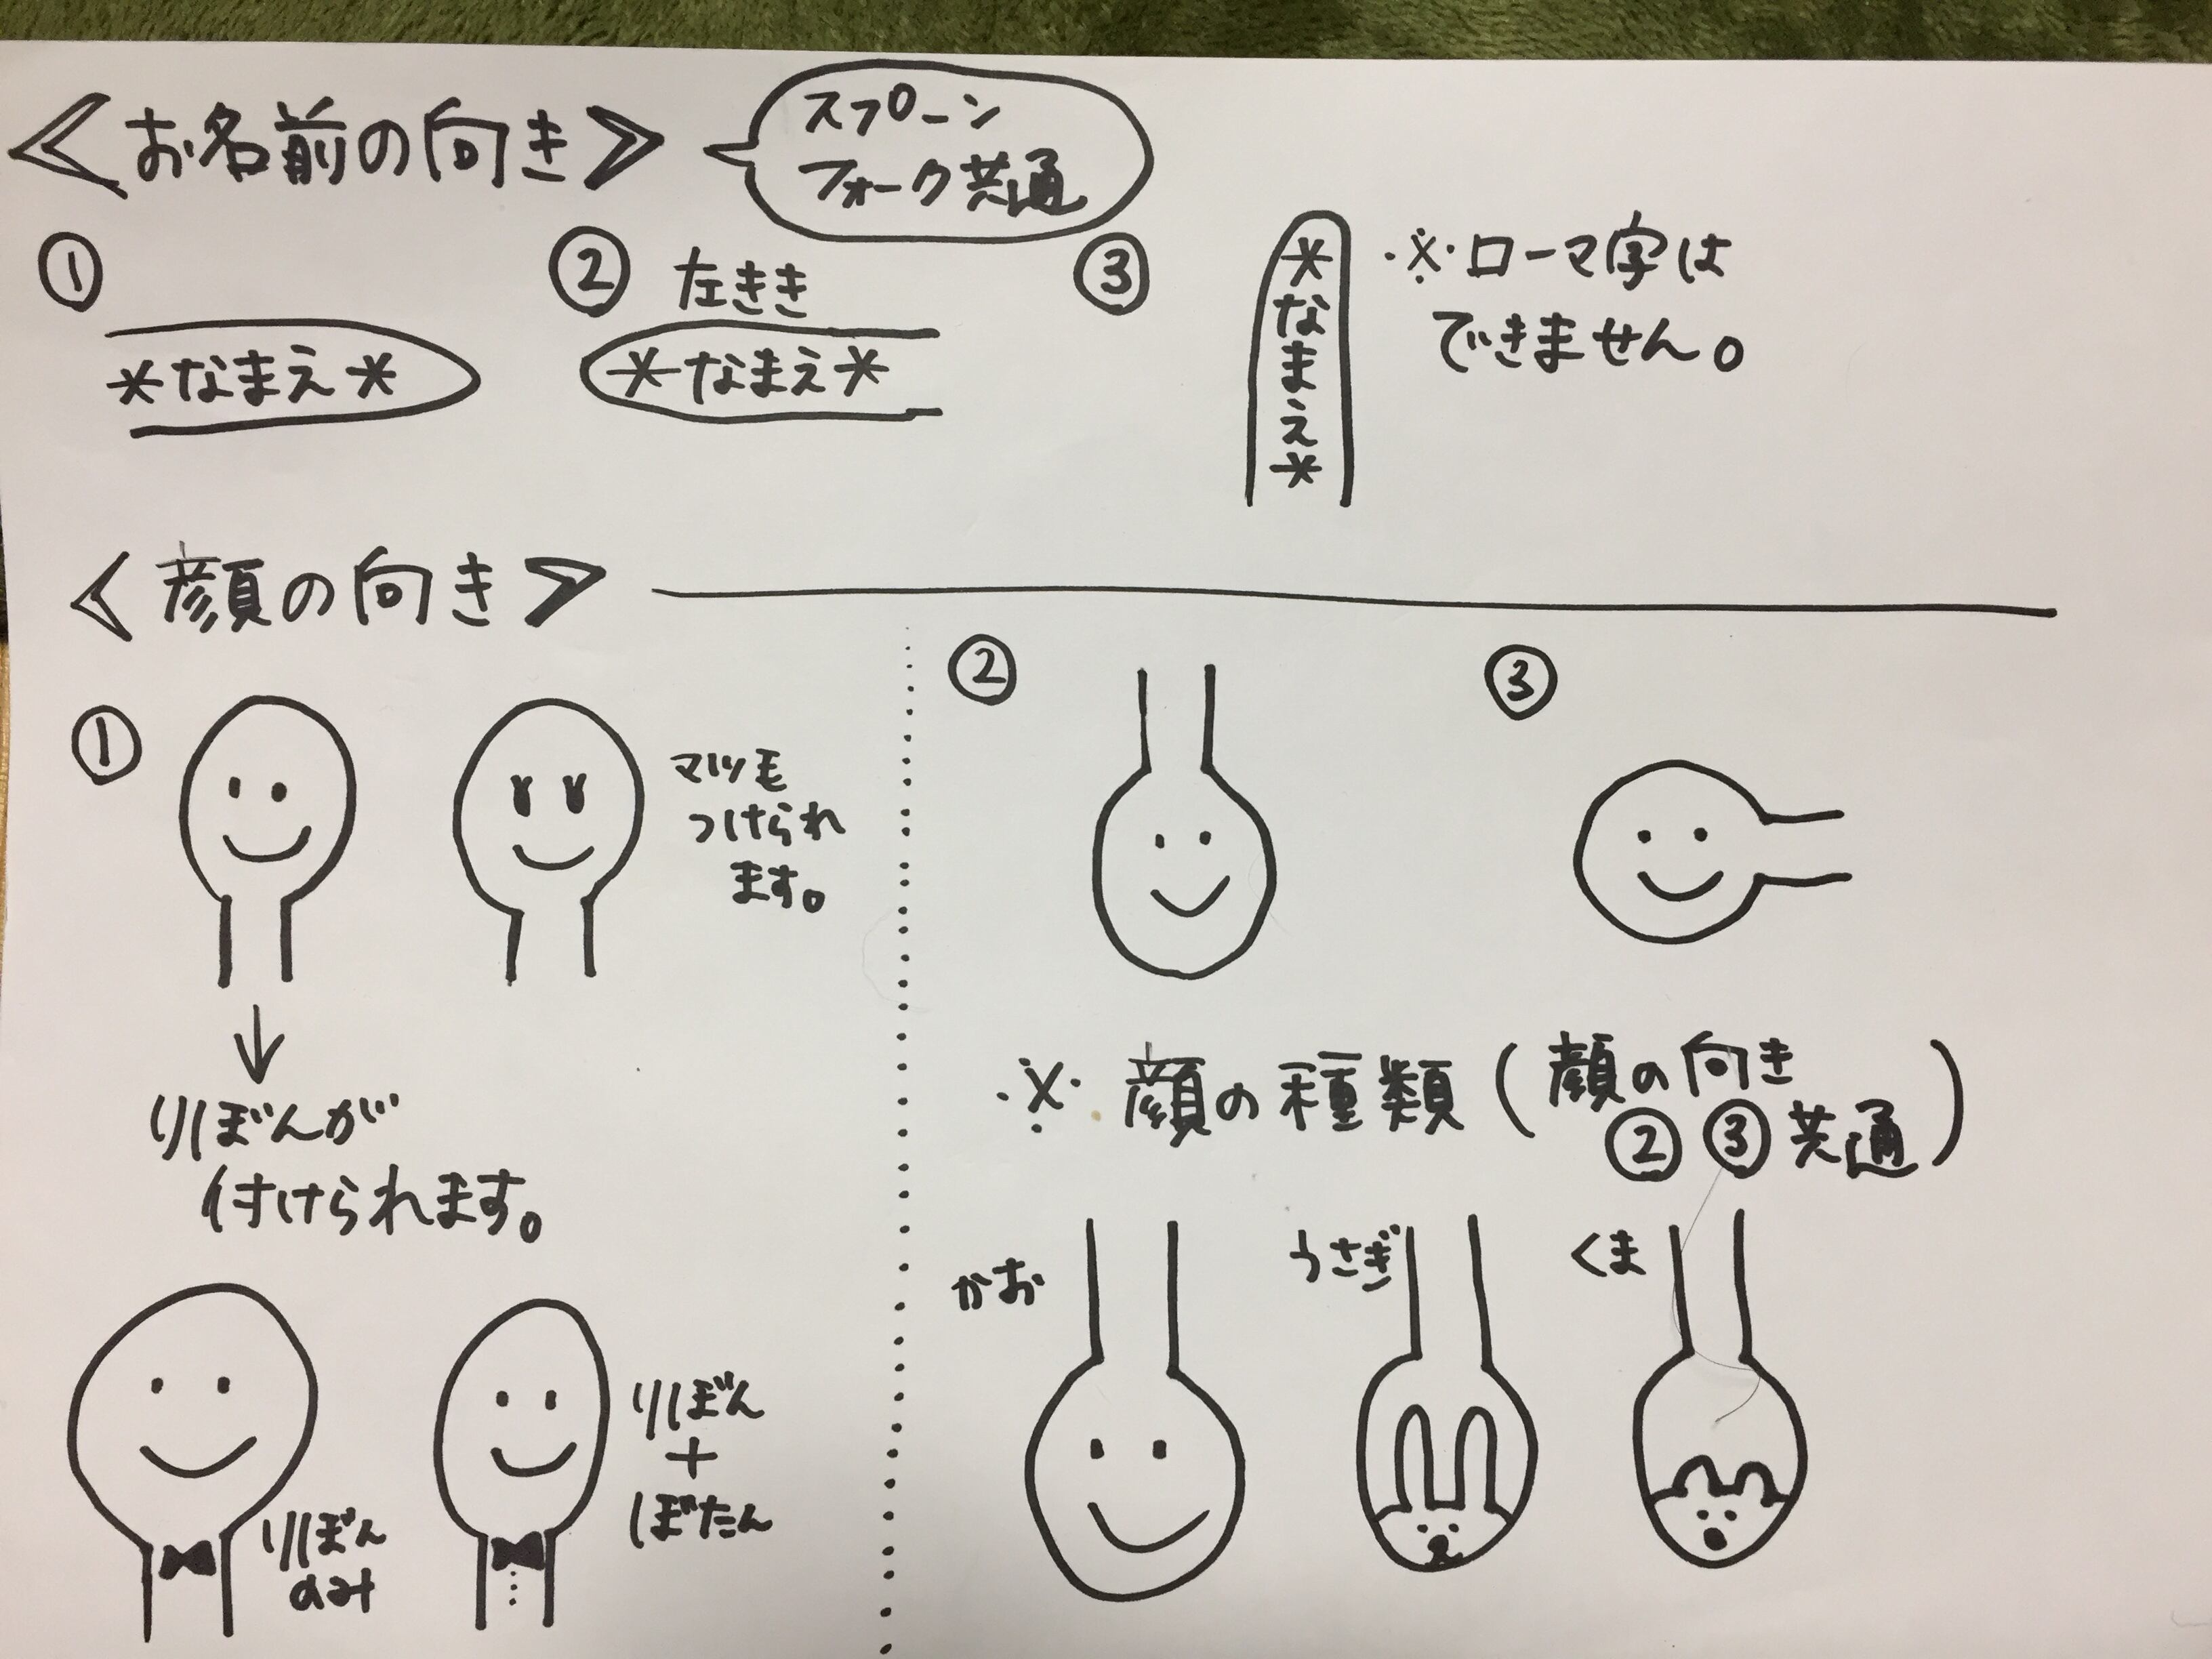 <お名前の向き>
スプーン
フォーク共通
①
*なまえ*
② 左きき
*なまえ*
③
*なまえ*
※ローマ字は
できません。
<顔の向き>
①
マツ毛
つけられ
ます。
りぼんが
付けられます。
りぼん
のみ
りぼん
+
ぼたん
②
③
※顔の種類(顔の向き
②③共通)
かお
うさぎ
くま